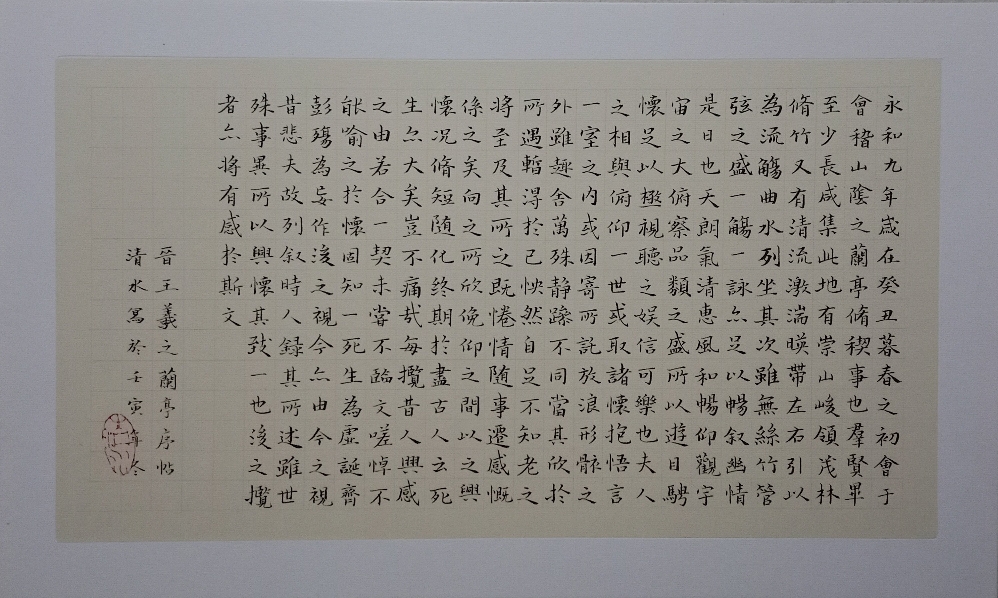 永和九年歲在癸丑暮春之初會于
會稽山陰之蘭亭脩稧事也羣賢畢
至少長咸集此地有崇山峻領茂林
脩竹又有清流激湍暎帶左右引以
為流觴曲水列坐其次雖無絲竹管
弦之盛一觴一詠亦足以暢叙幽情
是日也天朗氣清惠風和暢仰觀宇
宙之大俯察品類之盛所以遊目騁
懷足以極視聽之娛信可樂也夫人
之相與俯仰一世或取諸懷抱悟言
一室之内或因寄所託放浪形骸之
外雖趣舍萬殊静躁不同當其欣於
所遇蹔得於己怏然自足不知老之
將至及其所之既惓情随事遷感慨
係之矣向之所欣俛仰之間以之興
懷况脩短随化終期於盡古人云死
生亦大矣豈不痛哉每攬昔人興感
之由若合一契未嘗不臨文嗟悼不
能喻之於懷固知一死生為虛誕齊
彭殤為妄作後之視今亦由今之視
昔悲夫故列叙時人録其所述雖世
殊事異所以興懷其致一也後之攬
者亦將有感於斯文
晉王羲之蘭亭序帖
清水寫於壬寅年冬